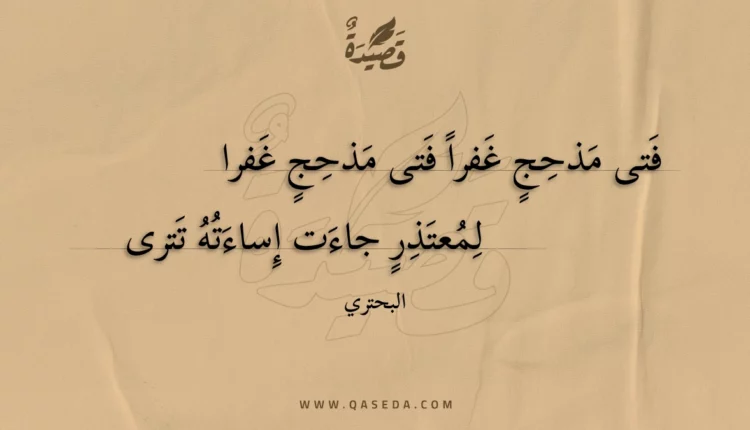 قَصِيدَةٌ
فَتى مَذحِجٍ غَفراً فَتى مَذحِجٍ غَفرا
لِمُعتَذِرٍ جاءَت إِساءَتُهُ تَترى
البحتري
WWW.QASEDA.COM